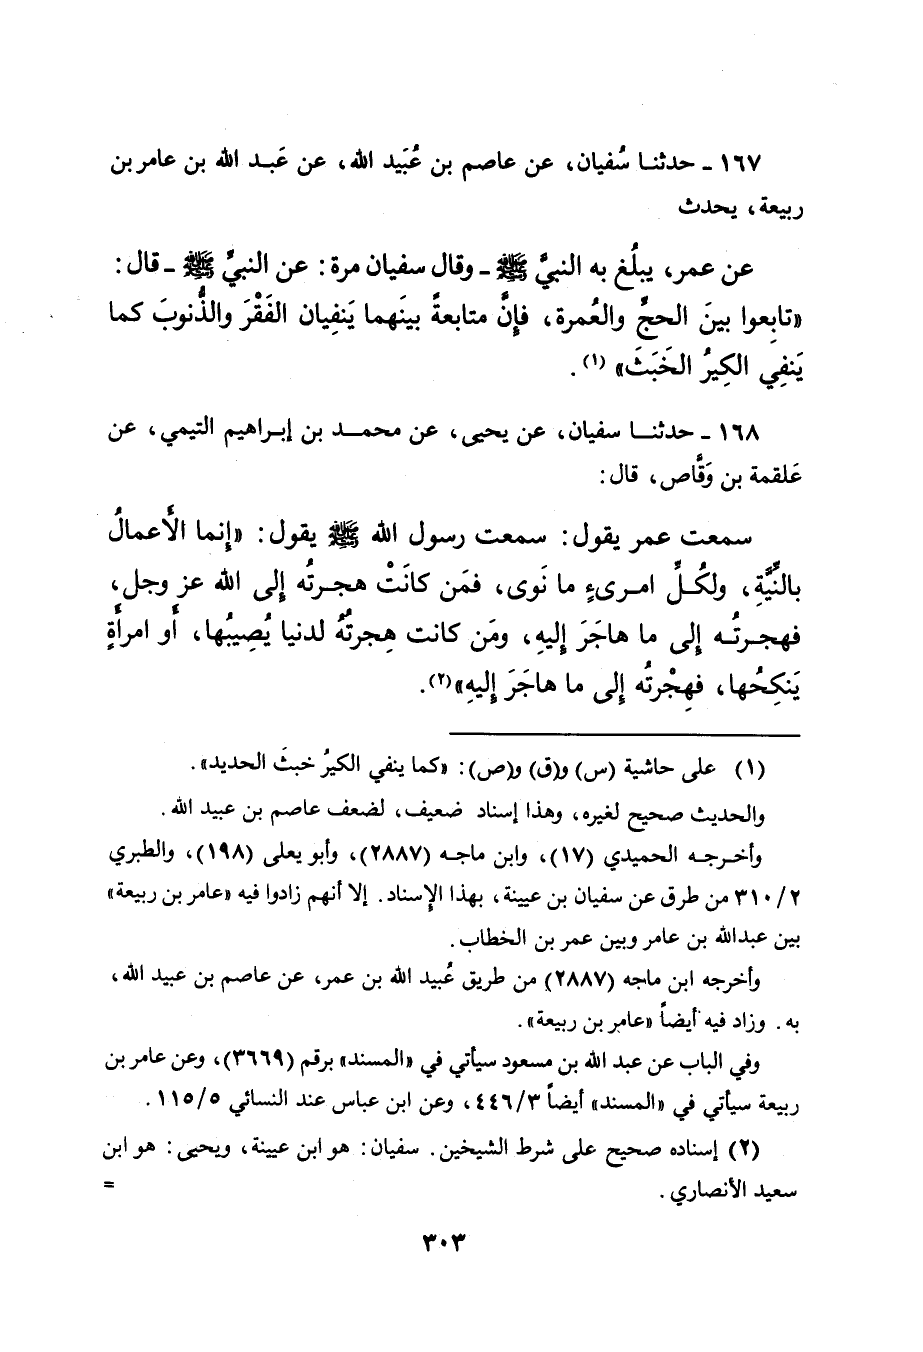 ١٦٧ ـ حدثنا سُفيان، عن عاصم بن عُبَيد الله، عن عَبد الله بن عامر بن
ربيعة، يحدث
عن عمر، يبلُغ به النبيَّ ﷺ ـ وقال سفيان مرة: عن النبيِّ ﷺ ـ قال:
«تابِعوا بينَ الحجِّ والعُمرة، فإِنَّ متابعةً بينَهما يَنفِيان الفَقْرَ والذُّنوبَ كما
يَنفِي الكِيرُ الخَبَثَ» (١) .
١٦٨ ـ حدثنا سفيان، عن يحيى، عن محمد بن إبراهيم التيمي، عن
عَلقمة بن وَقَّاص، قال:
سمعت عمر يقول: سمعت رسول الله ﷺ يقول: «إِنما الأَعمالُ
بالنِّيَّةِ، ولكُلِّ امرىءٍ ما نَوى، فمَن كانَتْ هجرتُه إِلى الله عز وجل،
فهجرتُه إِلى ما هاجَرَ إِليهِ، ومَن كانت هِجرتُهُ لدنيا يُصِيبُها، أَو امرأَةٍ
يَنكِحُها، فهِجْرتُه إِلى ما هاجَرَ إِليهِ»(٢).
(١) على حاشية (س) و(ق) و(ص): «كما ينفي الكيرُ خبثَ الحديد».
والحديث صحيح لغيره، وهذا إسناد ضعيف، لضعف عاصم بن عبيد الله.
وأخرجه الحميدي (١٧)، وابن ماجه (٢٨٨٧)، وأبو يعلى (١٩٨)، والطبري
٣١٠/٢ من طرق عن سفيان بن عيينة، بهذا الإِسناد. إلا أنهم زادوا فيه «عامر بن ربيعة»
بين عبدالله بن عامر وبين عمر بن الخطاب.
وأخرجه ابن ماجه (٢٨٨٧) من طريق عُبيد الله بن عمر، عن عاصم بن عبيد الله،
به. وزاد فيه أيضاً «عامر بن ربيعة».
وفي الباب عن عبد الله بن مسعود سيأتي في «المسند» برقم (٣٦٦٩)، وعن عامر بن
ربيعة سيأتي في «المسند» أيضاً ٤٤٦/٣، وعن ابن عباس عند النسائي ١١٥/٥ .
(٢) إسناده صحيح على شرط الشيخين. سفيان: هو ابن عيينة، ويحيى: هو ابن
سعيد الأنصاري. =
٣٠٣